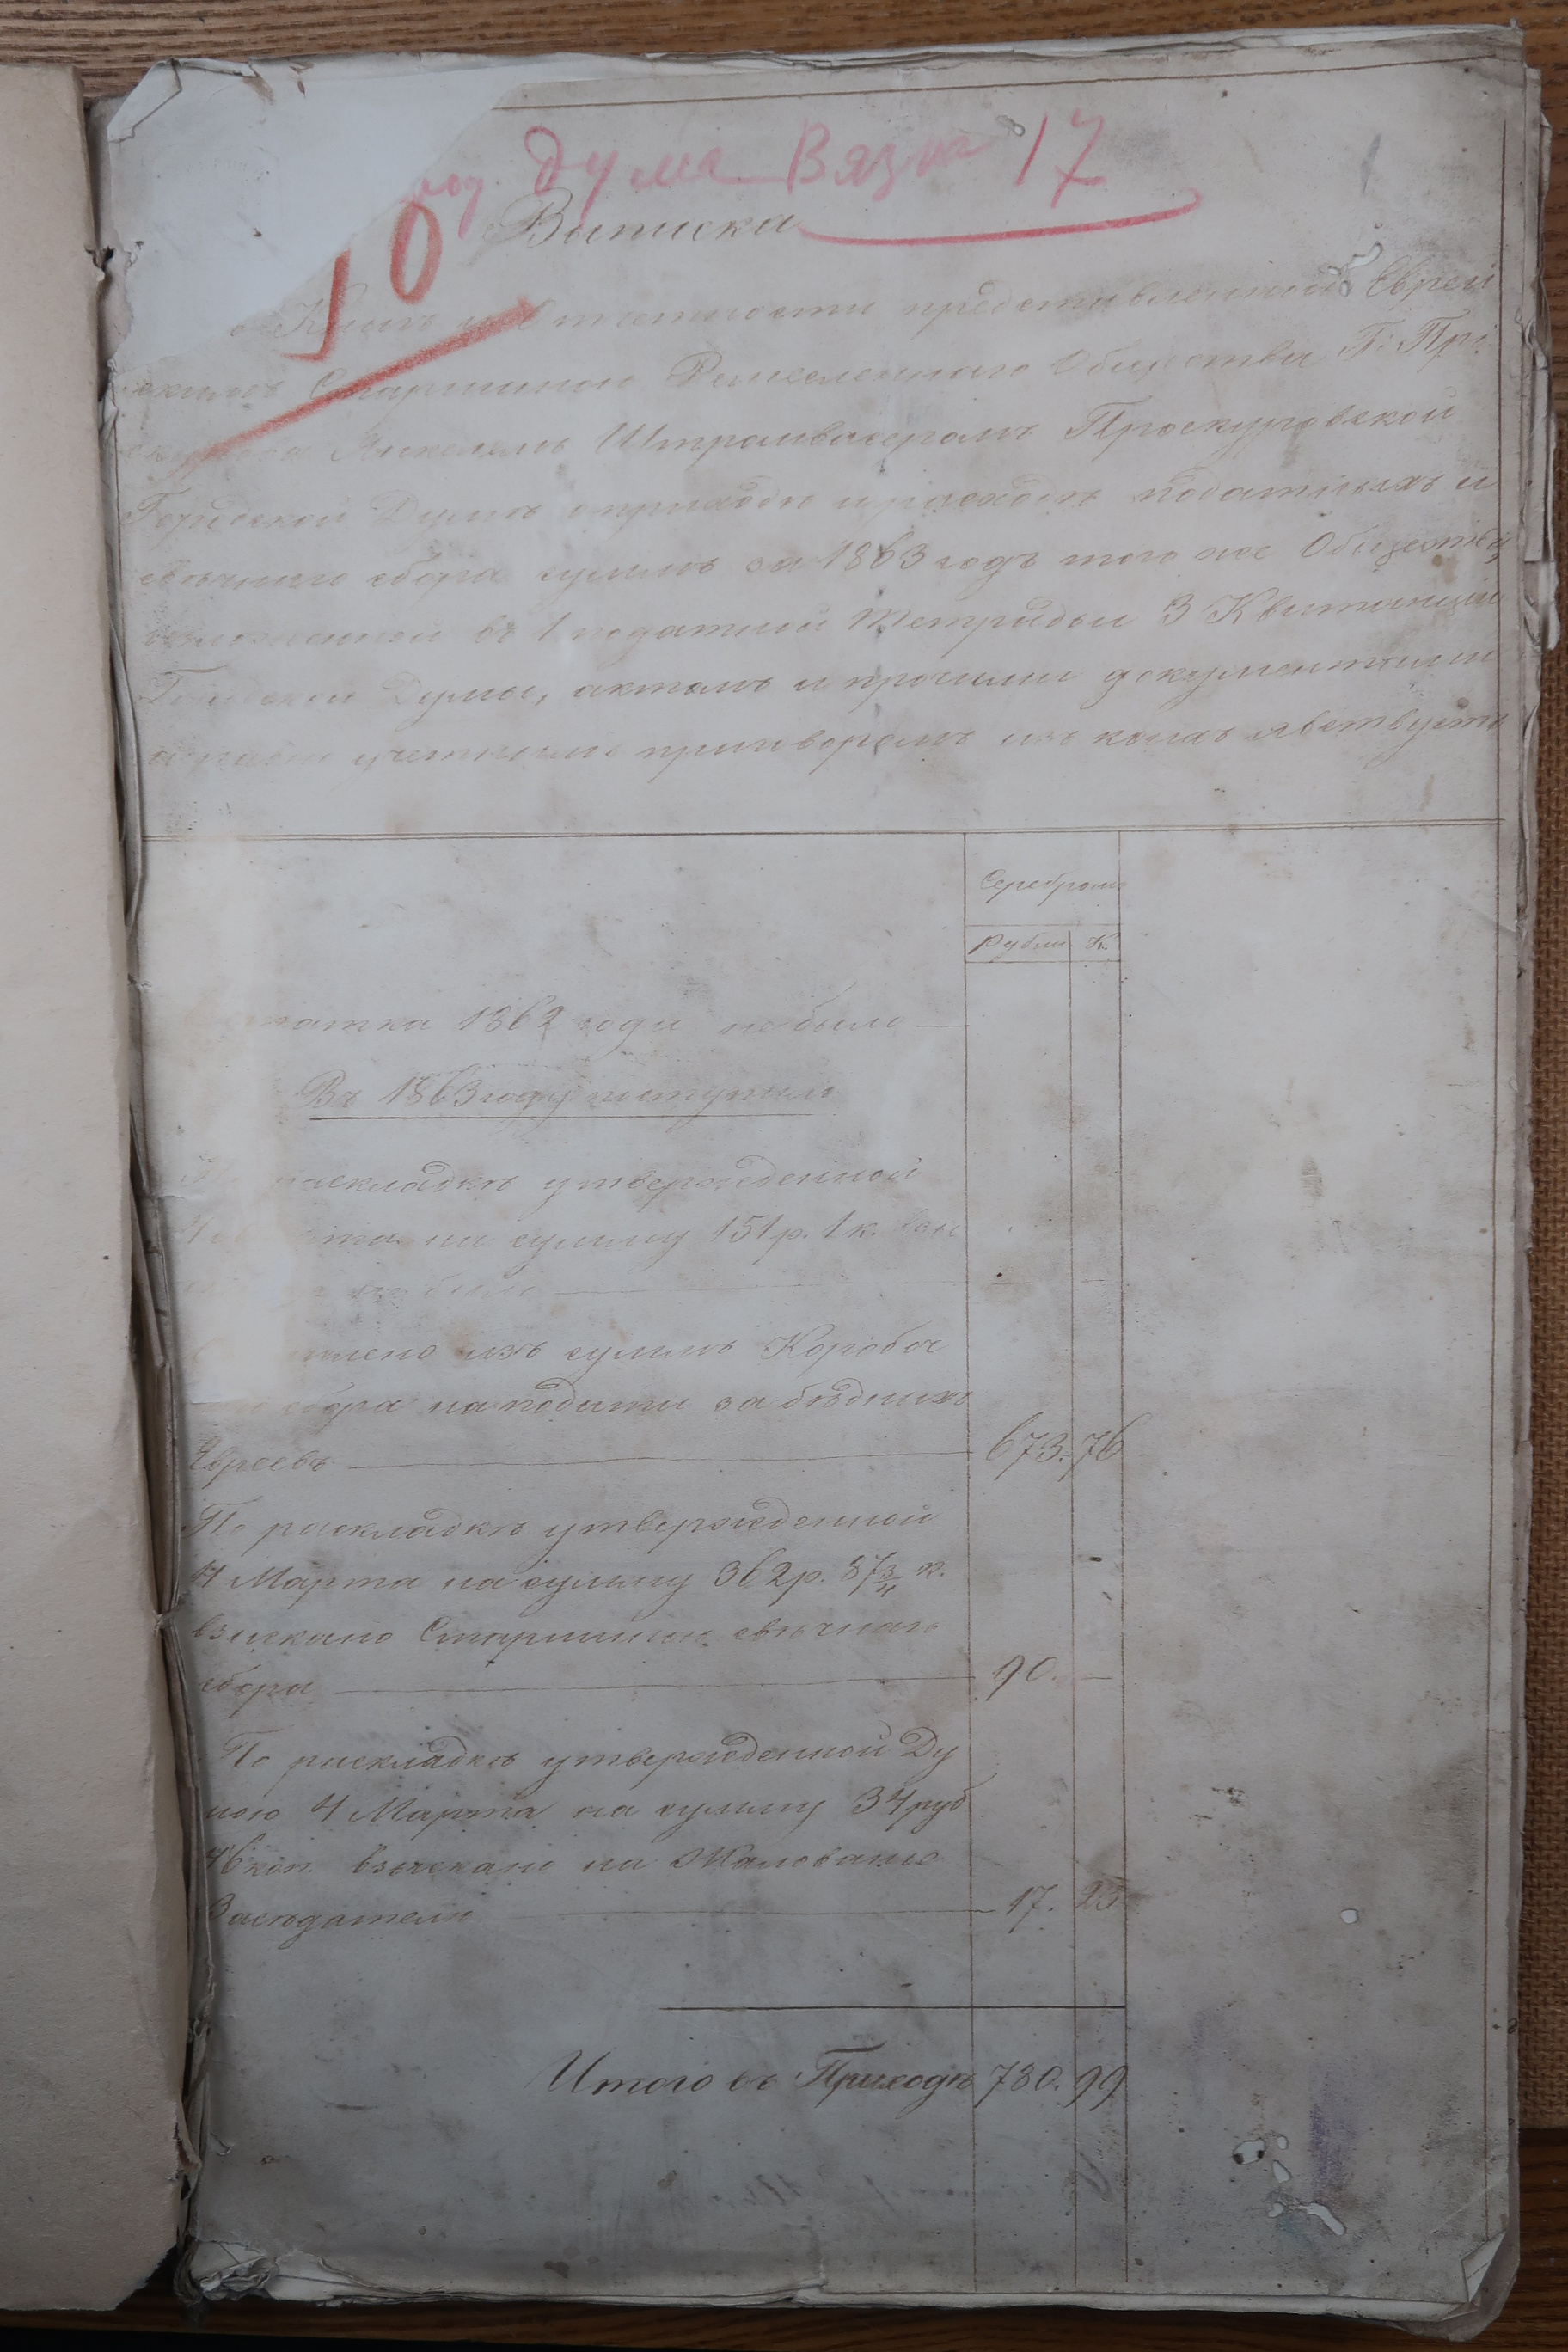 Дума Вязка 17
10
Выписка
отчетности представленной Еврей
скимъ Старшиною Ремесленнаго Общества Г. Про
скурова Штраивасеромъ Проскуровской
Городской Думѣ о приходѣ и расходѣ податныхъ и
свѣчнаго сбора суммъ за 1863 годъ того же Общества,
въ 1 податной тетради 3 Квитанціи
Городской Думы, актомъ и прочими документами
учетнымъ приговоромъ изъ коихъ явствуетъ
Серебромъ
Рубли К.
1862 года не было
Въ 1863 году поступило
раскладкѣ утвержденной
на сумму 151 р. 1 к.
не было
изъ суммъ Коробоч
сбора на подати за бѣдныхъ
Евреевъ 673. 76
По раскладкѣ утвержденной
4 Марта на сумму 362 р. 87 3/4 к.
взыскано Старшиною свѣчнаго
сбора 90. —
По раскладкѣ утвержденной Ду
мою 4 Марта на сумму 34 руб
46 коп. взыскано на Жалованье
Засѣдателю 17. 23
Итого въ Приходѣ 780. 99